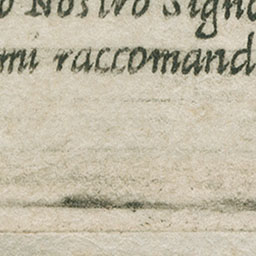 o Nostro Signo
mi raccomand